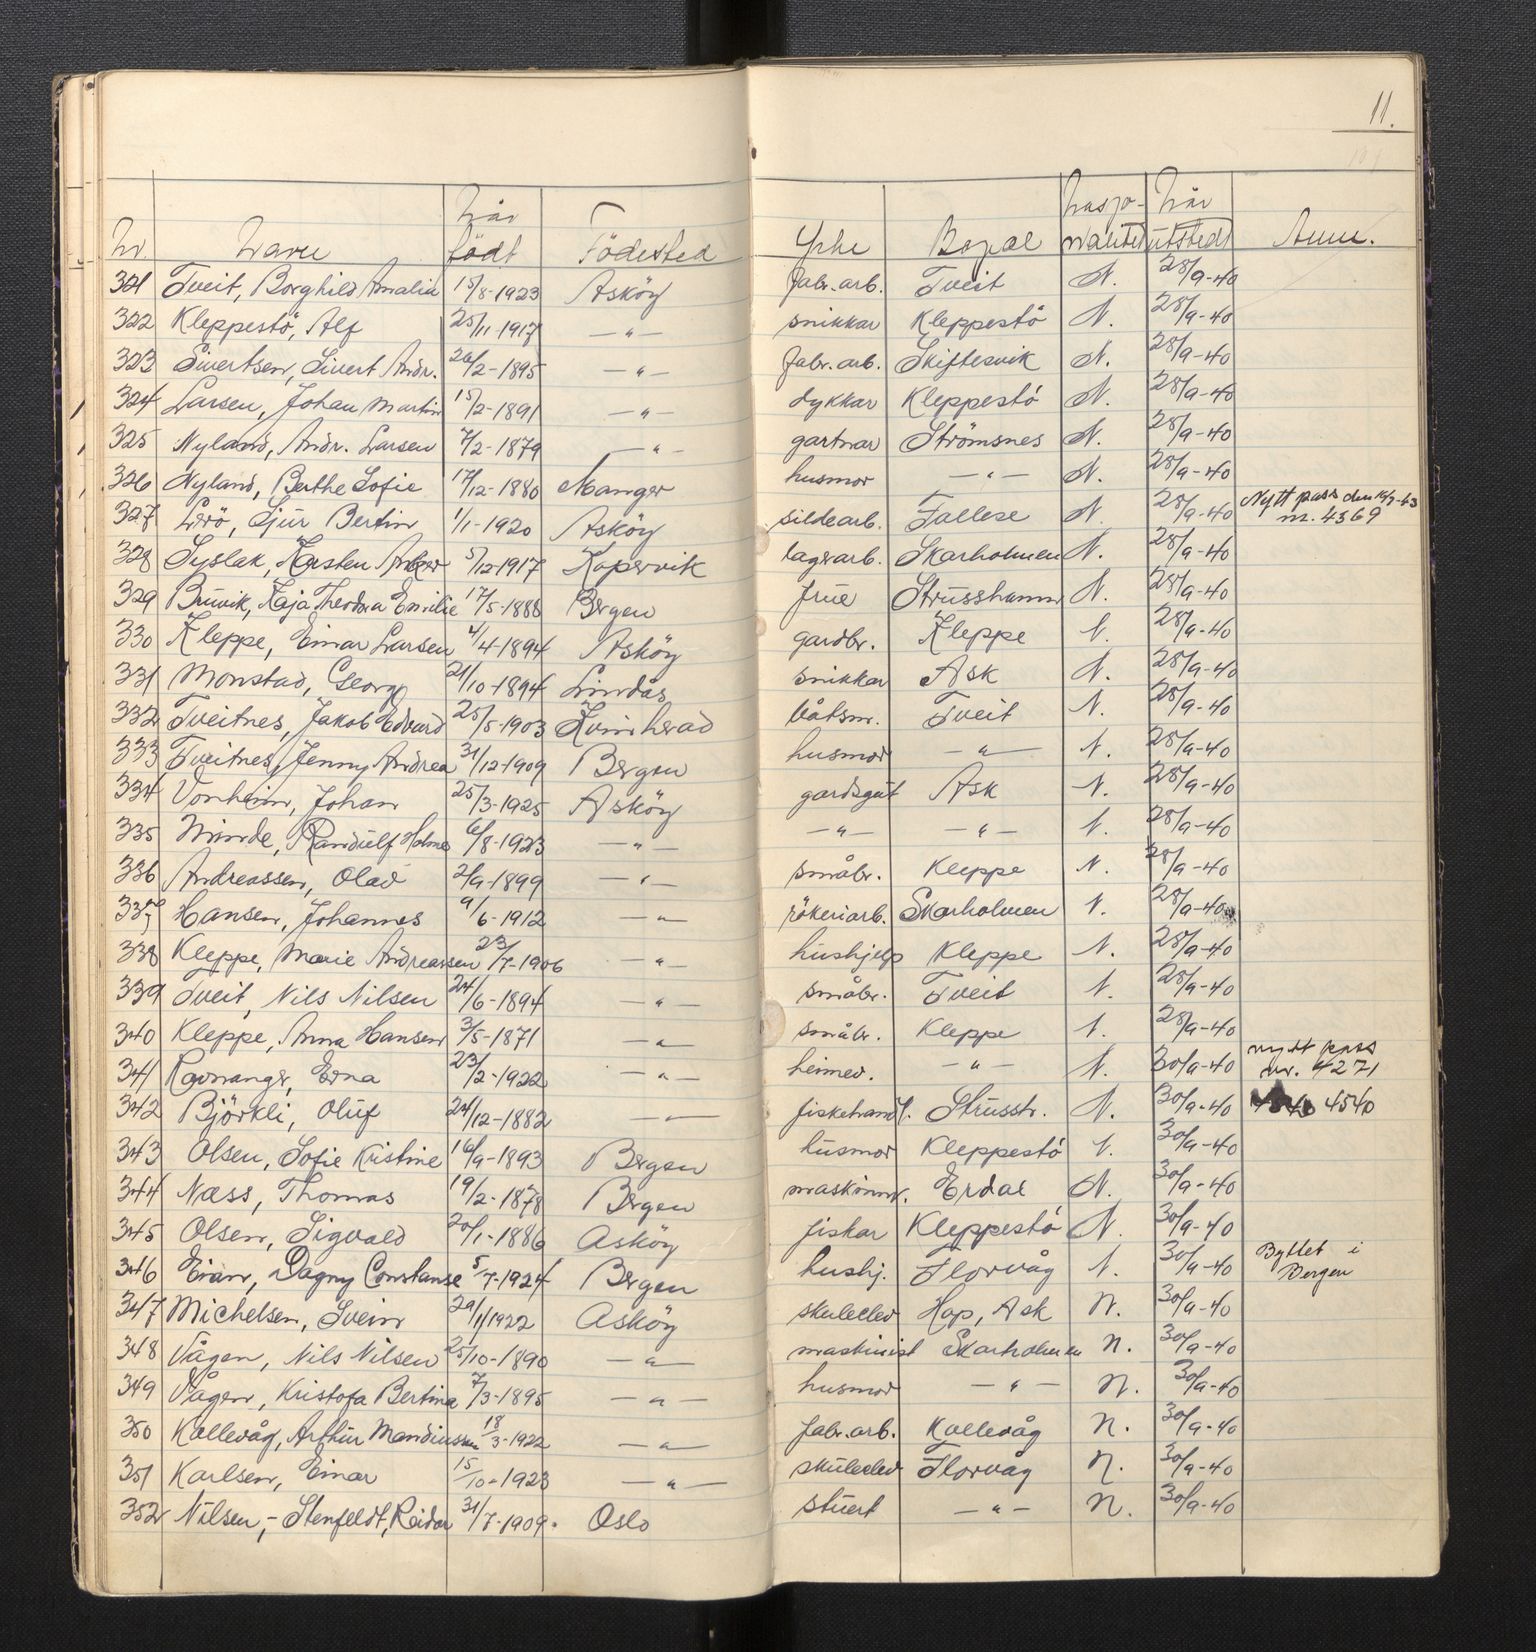 11.
Nr. Navn Når födt Födested Yrke Bopæl Nasjonalitet Når utstedt Anm.
321 Tveit, Borghild Amalia 15/8-1923 Asköy fabr.arb. Tveit N. 28/9-40
322 Kleppestö, Alf 25/11-1917 —"— snikkar Kleppestö N. 28/9-40
323 Sivertsen, Sivert Andr. 26/2-1895 —"— fabr.arb. Skiftesvik N. 28/9-40
324 Larsen, Johan Martin 15/2-1891 —"— dykkar Kleppestö N. 28/9-40
325 Nyland, Andr. Larsen 7/2-1879 —"— gartnar Strömsnes N. 28/9-40
326 Nyland, Berthe Sofie 17/12-1880 Manger husmor —"— N. 28/9-40
327 Lerö, Sjur Bertin 1/1-1920 Asköy sildearb. Follese N. 28/9-40 Nytt pass den 14/9-43
nr. 4369
328 Syslak, Karsten Anker 5/12-1917 Kopervik lagerarb. Skarholmen N. 28/9-40
329 Bruvik, Kaja Theodora Emilie 17/5-1888 Bergen frue Strusshamn N. 28/9-40
330 Kleppe, Einar Larsen 4/4-1894 Asköy gardbr. Kleppe N. 28/9-40
331 Monstad, Georg 21/10-1894 Lindås snikkar Ask N. 28/9-40
332 Tveitnes, Jakob Edvard 25/5-1903 Kvinherad båtsm. Tveit N. 28/9-40
333 Tveitnes, Jenny Andrea 31/12-1909 Bergen husmor —"— N. 28/9-40
334 Vonheim, Johan 25/3-1925 Asköy gardsgut Ask N. 28/9-40
335 Minde, Randulf Holmes 6/8-1923 —"— —"— —"— N. 28/9-40
336 Andreassen, Olav 2/9-1899 —"— småbr. Kleppe N. 28/9-40
337 Hansen, Johannes 9/6-1912 —"— rökeriarb. Skarholmen N. 28/9-40
338 Kleppe, Marie Andreassen 23/7-1906 —"— hushjelp Kleppe N. 28/9-40
339 Tveit, Nils Nilsen 24/6-1894 —"— småbr. Tveit N. 28/9-40
340 Kleppe, Anna Hansen 3/5-1871 —"— småbr. Kleppe N. 28/9-40
341 Ravnanger, Erna 23/2-1922 —"— heimev. —"— N. 30/9-40 nytt pass
nr. 4271
342 Björkli, Oluf 24/12-1882 —"— fiskehandl. Strusst. N. 30/9-40 4540
343 Olsen, Sofie Kristine 16/9-1893 Bergen husmor Kleppestö N. 30/9-40
344 Næss, Thomas 19/2-1878 Bergen maskinm. Erdal N. 30/9-40
345 Olsen, Sigvald 20/1-1886 Asköy fiskar Kleppestö N. 30/9-40
346 Eian, Dagny Constanse 5/7-1924 Bergen hushj. Florvåg N. 30/9-40 Byttet i
Bergen
347 Michelsen, Svein 29/11 1922 Asköy skuleelev Hop, Ask N. 30/9-40
348 Vågen, Nils Nilsen 25/10-1890 —"— maskinist Skarholmen N. 30/9-40
349 Vågen, Kristofa Bertina 7/3-1895 —"— husmor —"— N. 30/9-40
350 Kollevåg, Arthur Mandiussen 18/3-1922 —"— fabr.arb. Kollevåg N. 30/9-40
351 Karlsen, Einar 15/10-1923 —"— skuleelev Florvåg N. 30/9-40
352 Nilsen,- Stenfeldt, Reidar 31/7-1909. Oslo stuert —"— N. 30/9-40